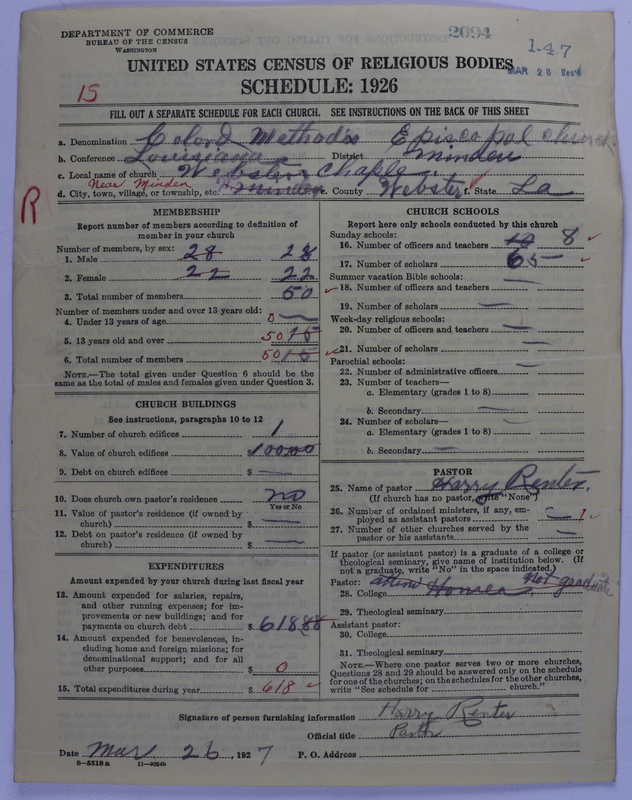 DEPARTMENT OF COMMERCE
BUREAU OF THE CENSUS
WASHINGTON
2094
1-47
MAR 28 Rec'd
UNITED STATES CENSUS OF RELIGIOUS BODIES
SCHEDULE: 1926
15
FILL OUT A SEPARATE SCHEDULE FOR EACH CHURCH. SEE INSTRUCTIONS ON THE BACK OF THIS SHEET
a. Denomination Colord Methodis Episcopal church
b. Conference Louisiana District minden
c. Local name of church Webster Chaple
d. City, town, village, or township, etc. Near Minden minden e. County Webster f. State La
R
MEMBERSHIP
Report number of members according to definition of member in your church
Number of members, by sex:
1. Male 28 28
2. Female 22 22
3. Total number of members 50
Number of members under and over 13 years old:
4. Under 13 years of age 0 —
5. 13 years old and over 50 15
6. Total number of members 50 15
NOTE.—The total given under Question 6 should be the same as the total of males and females given under Question 3.
CHURCH BUILDINGS
See instructions, paragraphs 10 to 12
7. Number of church edifices 1
8. Value of church edifices $1000.00
9. Debt on church edifices $ —
10. Does church own pastor's residence no
Yes or No
11. Value of pastor's residence (if owned by church) $ —
12. Debt on pastor's residence (if owned by church) $ —
EXPENDITURES
Amount expended by your church during last fiscal year
13. Amount expended for salaries, repairs, and other running expenses; for improvements or new buildings; and for payments on church debt $ 618 88
14. Amount expended for benevolences, including home and foreign missions; for denominational support; and for all other purposes $ 0
15. Total expenditures during year $ 618
CHURCH SCHOOLS
Report here only schools conducted by this church
Sunday schools:
16. Number of officers and teachers 10 8
17. Number of scholars 65
Summer vacation Bible schools:
18. Number of officers and teachers —
19. Number of scholars —
Week-day religious schools:
20. Number of officers and teachers —
21. Number of scholars —
Parochial schools:
22. Number of administrative officers —
23. Number of teachers—
a. Elementary (grades 1 to 8)
b. Secondary —
24. Number of scholars—
a. Elementary (grades 1 to 8) —
b. Secondary —
PASTOR
25. Name of pastor Harry Renter.
(If church has no pastor, write "None")
26. Number of ordained ministers, if any, employed as assistant pastors — 1
27. Number of other churches served by the pastor or his assistants —
If pastor (or assistant pastor) is a graduate of a college or theological seminary, give name of institution below. (If not a graduate, write "No" in the space indicated.)
Pastor: attend not graduate
28. College
29. Theological seminary
Assistant pastor:
30. College
31. Theological seminary
NOTE.—Where one pastor serves two or more churches, Questions 28 and 29 should be answered only on the schedule for one of the churches; on the schedules for the other churches, write "See schedule for church."
Signature of person furnishing information Harry Renter
Official title Pastor
Date Mar 26, 1927 P. O. Address
8—5518 a 11—9264b